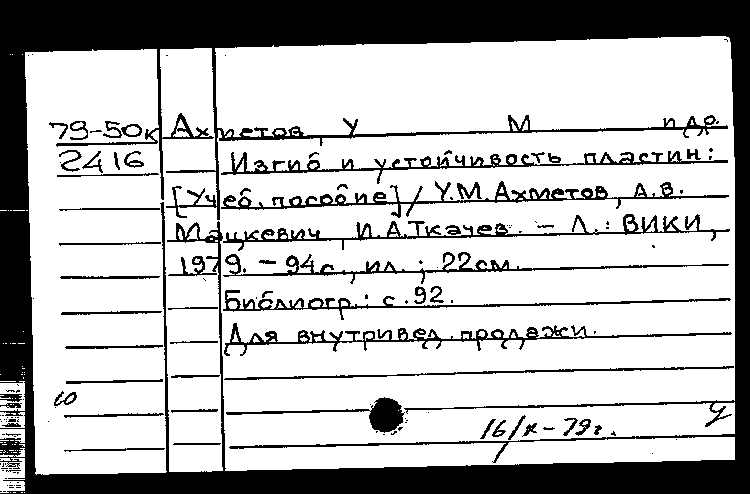 79-50к Ахметов, У М и др.
2416 Изгиб и устойчивость пластин:
[Учеб. пособие] / У.М. Ахметов, А.В.
Мацкевич, И.А. Ткачев. – Л.: ВИКИ,
1979. – 94 с., ил.; 22 см.
Библиогр.: с. 92.
Для внутривед. продажи.
ю
16/х-79г. У